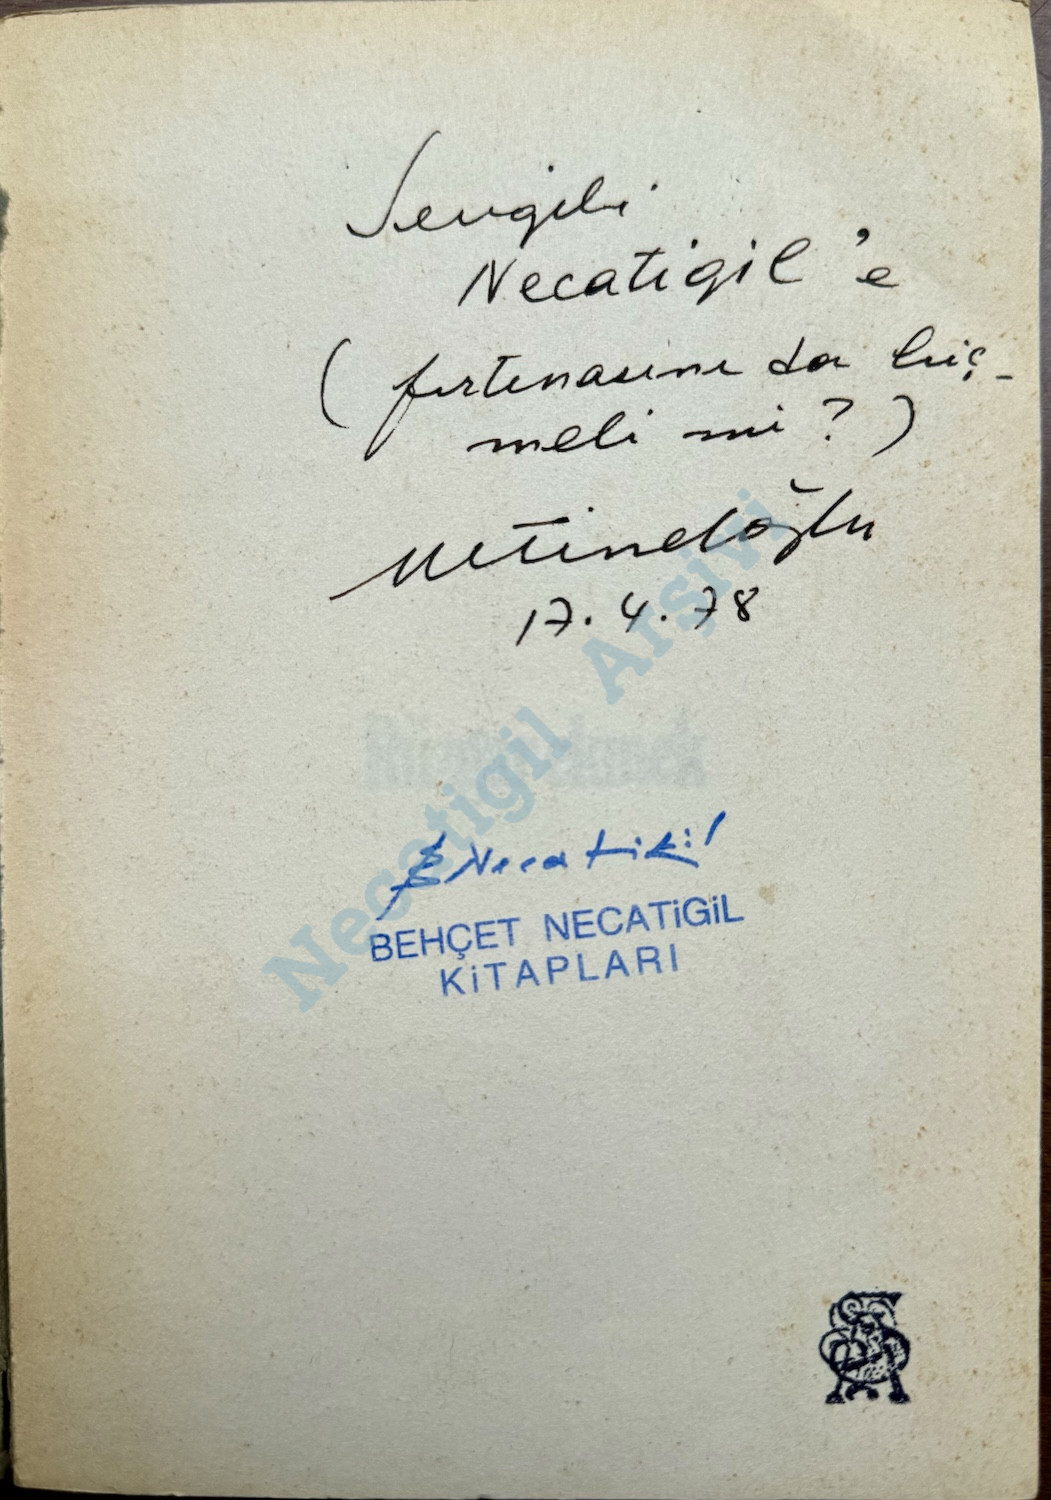 Sevgili
Necatigil'e
( fırtınasını da biç-
meli mi? )
Metineloğlu
17.4.78
Rüzgâr Ekmek
BNecatigil
BEHÇET NECATİGİL
KİTAPLARI
Necatigil Arşivi